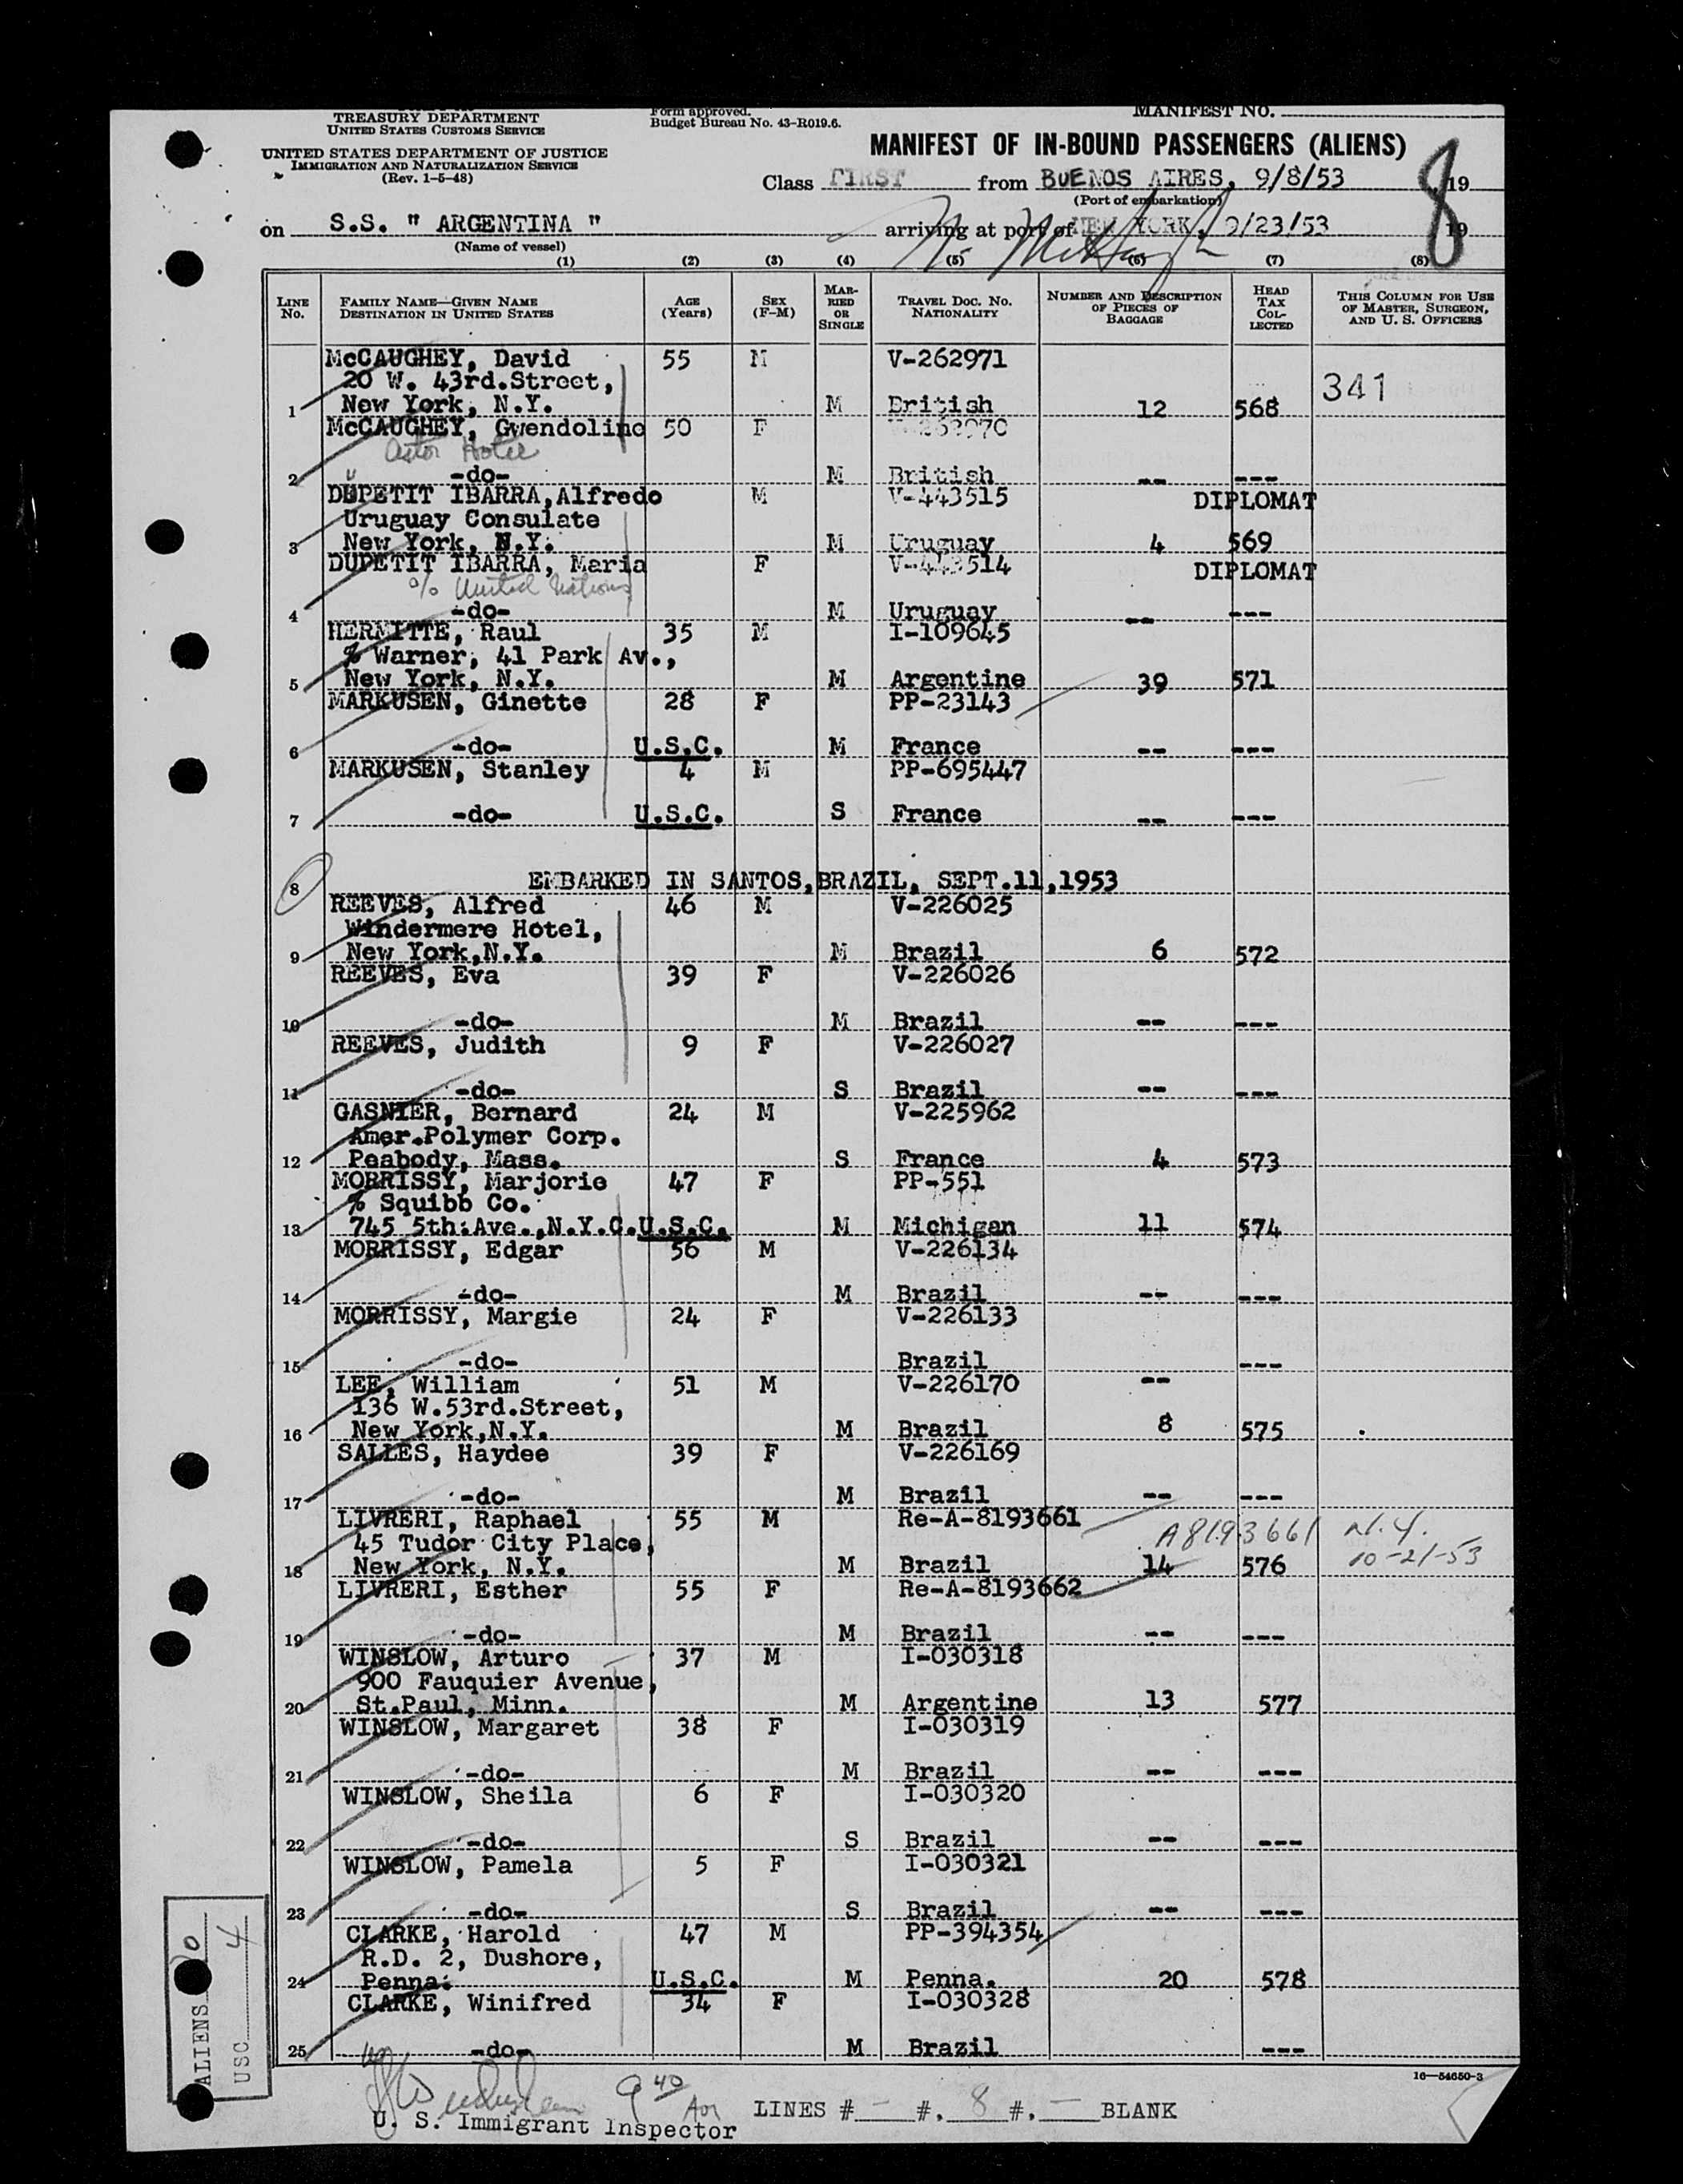 TREASURY DEPARTMENT
UNITED STATES CUSTOMS SERVICE
UNITED STATES DEPARTMENT OF JUSTICE
IMMIGRATION AND NATURALIZATION SERVICE
(Rev. 1-5-48)
Form approved.
Budget Bureau No. 43-R019.6.
MANIFEST NO.
MANIFEST OF IN-BOUND PASSENGERS (ALIENS)
8
Class FIRST from BUENOS AIRES, 9/8/53, 19
(Port of embarkation)
on S.S. " ARGENTINA " arriving at port of NEW YORK, 9/23/53, 19
(Name of vessel)
(1) (2) (3) (4) (5) (6) (7) (8)
LINE No. FAMILY NAME—GIVEN NAME DESTINATION IN UNITED STATES AGE (Years) SEX (F-M) MARRIED OR SINGLE TRAVEL DOC. NO. NATIONALITY NUMBER AND DESCRIPTION OF PIECES OF BAGGAGE HEAD TAX COLLECTED THIS COLUMN FOR USE OF MASTER, SURGEON, AND U. S. OFFICERS
McCAUGHEY, David 55 M V-262971
20 W. 43rd.Street, 341
1 New York, N.Y. M British 12 568
McCAUGHEY, Gwendoline 50 F V-262970
Astor Hotel
2 -do- M British -- ---
DUPETIT IBARRA,Alfredo M V-443515 DIPLOMAT
Uruguay Consulate
3 New York, N.Y. M Uruguay 4 569
DUPETIT IBARRA, Maria F V-443514 DIPLOMAT
% United Nations
4 -do- M Uruguay -- ---
HERMITTE, Raul 35 M I-109645
% Warner, 41 Park Av.,
5 New York, N.Y. M Argentine 39 571
MARKUSEN, Ginette 28 F PP-23143
6 -do- U.S.C. M France -- ---
MARKUSEN, Stanley 4 M PP-695447
7 -do- U.S.C. S France -- ---
8 EMBARKED IN SANTOS,BRAZIL, SEPT.11,1953
REEVES, Alfred 46 M V-226025
Windermere Hotel,
9 New York,N.Y. M Brazil 6 572
REEVES, Eva 39 F V-226026
10 -do- M Brazil -- ---
REEVES, Judith 9 F V-226027
11 -do- S Brazil -- ---
GASNIER, Bernard 24 M V-225962
Amer.Polymer Corp.
12 Peabody, Mass. S France 4 573
MORRISSY, Marjorie 47 F PP-551
% Squibb Co.
13 745 5th.Ave.,N.Y.C. U.S.C. M Michigan 11 574
MORRISSY, Edgar 56 M V-226134
14 -do- M Brazil -- ---
MORRISSY, Margie 24 F V-226133
15 -do- Brazil ---
LEE, William 51 M V-226170 --
136 W.53rd.Street,
16 New York,N.Y. M Brazil 8 575
SALLES, Haydee 39 F V-226169
17 -do- M Brazil -- ---
LIVRERI, Raphael 55 M Re-A-8193661
45 Tudor City Place, A8193661 N.Y.
18 New York, N.Y. M Brazil 14 576 10-21-53
LIVRERI, Esther 55 F Re-A-8193662
19 -do- M Brazil -- ---
WINSLOW, Arturo 37 M I-030318
900 Fauquier Avenue,
20 St.Paul, Minn. M Argentine 13 577
WINSLOW, Margaret 38 F I-030319
21 -do- M Brazil -- ---
WINSLOW, Sheila 6 F I-030320
22 -do- S Brazil -- ---
WINSLOW, Pamela 5 F I-030321
23 -do- S Brazil -- ---
CLARKE, Harold 47 M PP-394354
R.D. 2, Dushore,
24 Penna. U.S.C. M Penna. 20 578
CLARKE, Winifred 34 F I-030328
25 -do- M Brazil ---
ALIENS
USC 4
16—54650-3
9 40
U. S. Immigrant Inspector LINES # - #, 8 #, - BLANK